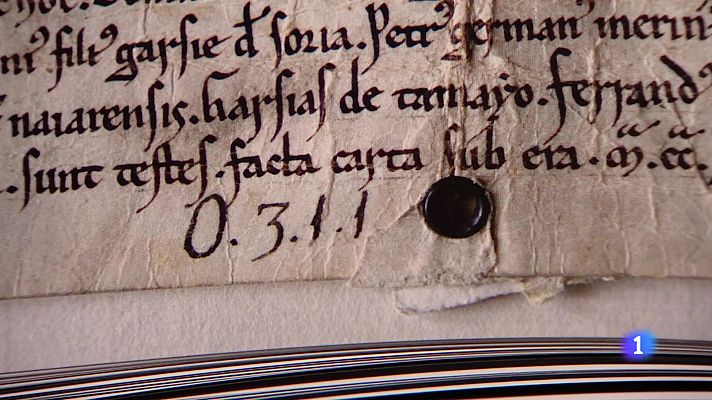 filiꝰ garsie đ soria. Petrꝰ german merin
naiarensis. Garsias de tamayo. ferrandꝰ
. sunt testes. facta carta sub era. M. CC.
O. 3. 1. 1
1